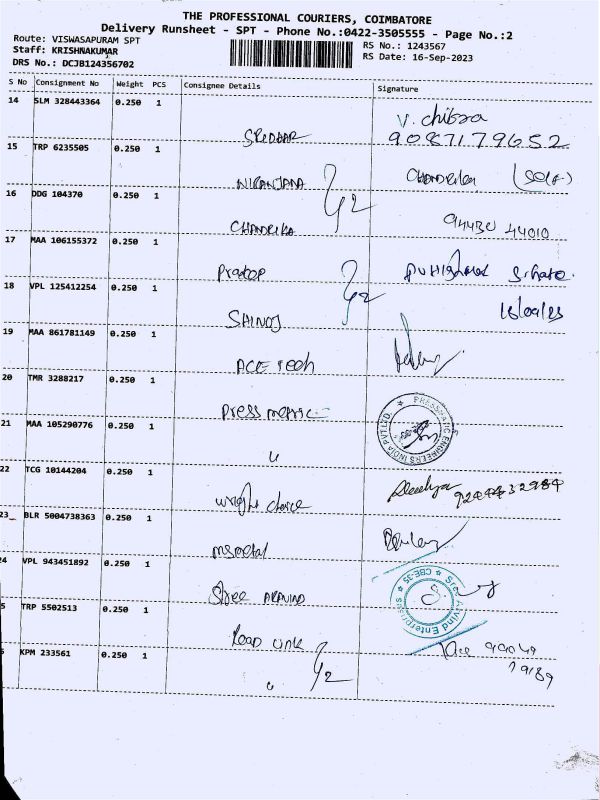 THE PROFESSIONAL COURIERS, COIMBATORE
Delivery Runsheet - SPT - Phone No.:0422-3505555 - Page No.:2
Route: VISWASAPURAM SPT
RS No.: 1243567
Staff: KRISHNAKUMAR
RS Date: 16-Sep-2023
DRS No.: DCJB124356702
S No Consignment No Weight PCS Consignee Details Signature
14 SLM 328443364 0.250 1
SRIDHAR V. chitra
9087179652
15 TRP 6235505 0.250 1
NIRANJANA CHANDRIKA (Self)
16 DDG 104370 0.250 1
CHANDRIKA 94430 44010
17 MAA 106155372 0.250 1
Pradeep
18 VPL 125412254 0.250 1
SHINOJ 16/09/23
19 MAA 861781149 0.250 1
ACE Tech
20 TMR 3288217 0.250 1
Press metric
21 MAA 105290776 0.250 1
"
22 TCG 10144204 0.250 1
wright choice
23 BLR 5004738363 0.250 1
msmetal
24 VPL 943451892 0.250 1
Shree ARAVIND
Sree Arvind Enterprises CBE-35
5 TRP 5502513 0.250 1
Road link
KPM 233561 0.250 1
"